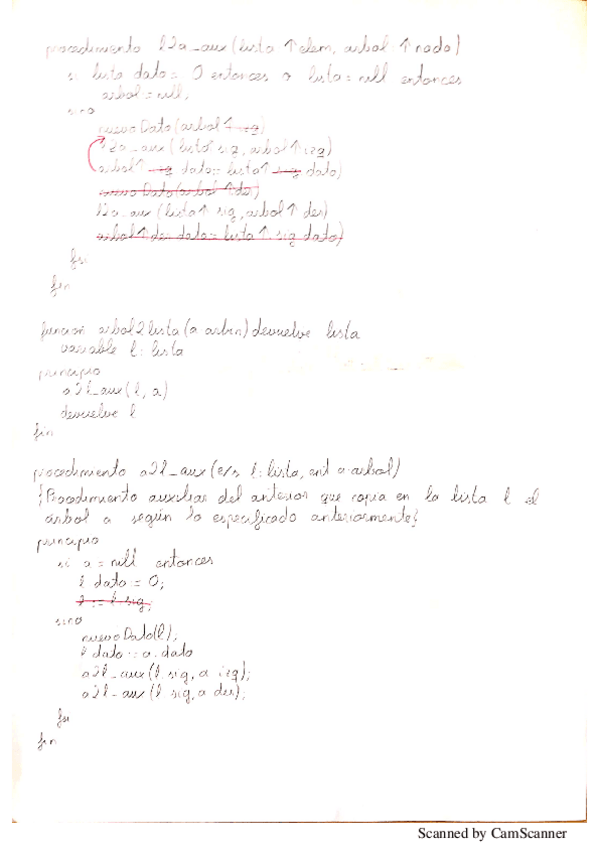 procedimiento l2a_aux (lista ↑ elem, arbol ↑ nodo)
si lista dato = 0 entonces o lista = null entonces
arbol = null;
sino
nuevoDato(arbol ↑ sig)
l2a_aux (lista↑ sig, arbol ↑ izq)
arbol↑ sig dato = lista↑ sig dato)
nuevoDato(arbol ↑ der)
l2a_aux (lista ↑ sig, arbol ↑ der)
arbol ↑ der dato = lista ↑ sig dato)
fsi
fin
funcion arbol2lista (a arbin) devuelve lista
variable l : lista
principio
a2l_aux (l, a)
devuelve l
fin
procedimiento a2l_aux (e/s l : lista, ent a : arbol)
{Procedimiento auxiliar del anterior que copia en la lista l el
árbol a según lo especificado anteriormente}
principio
si a = null entonces
l dato = 0;
l := l sig;
sino
nuevoDato(l);
l dato := a dato
a2l_aux (l sig, a izq);
a2l_aux (l sig, a der);
fsi
fin
Scanned by CamScanner